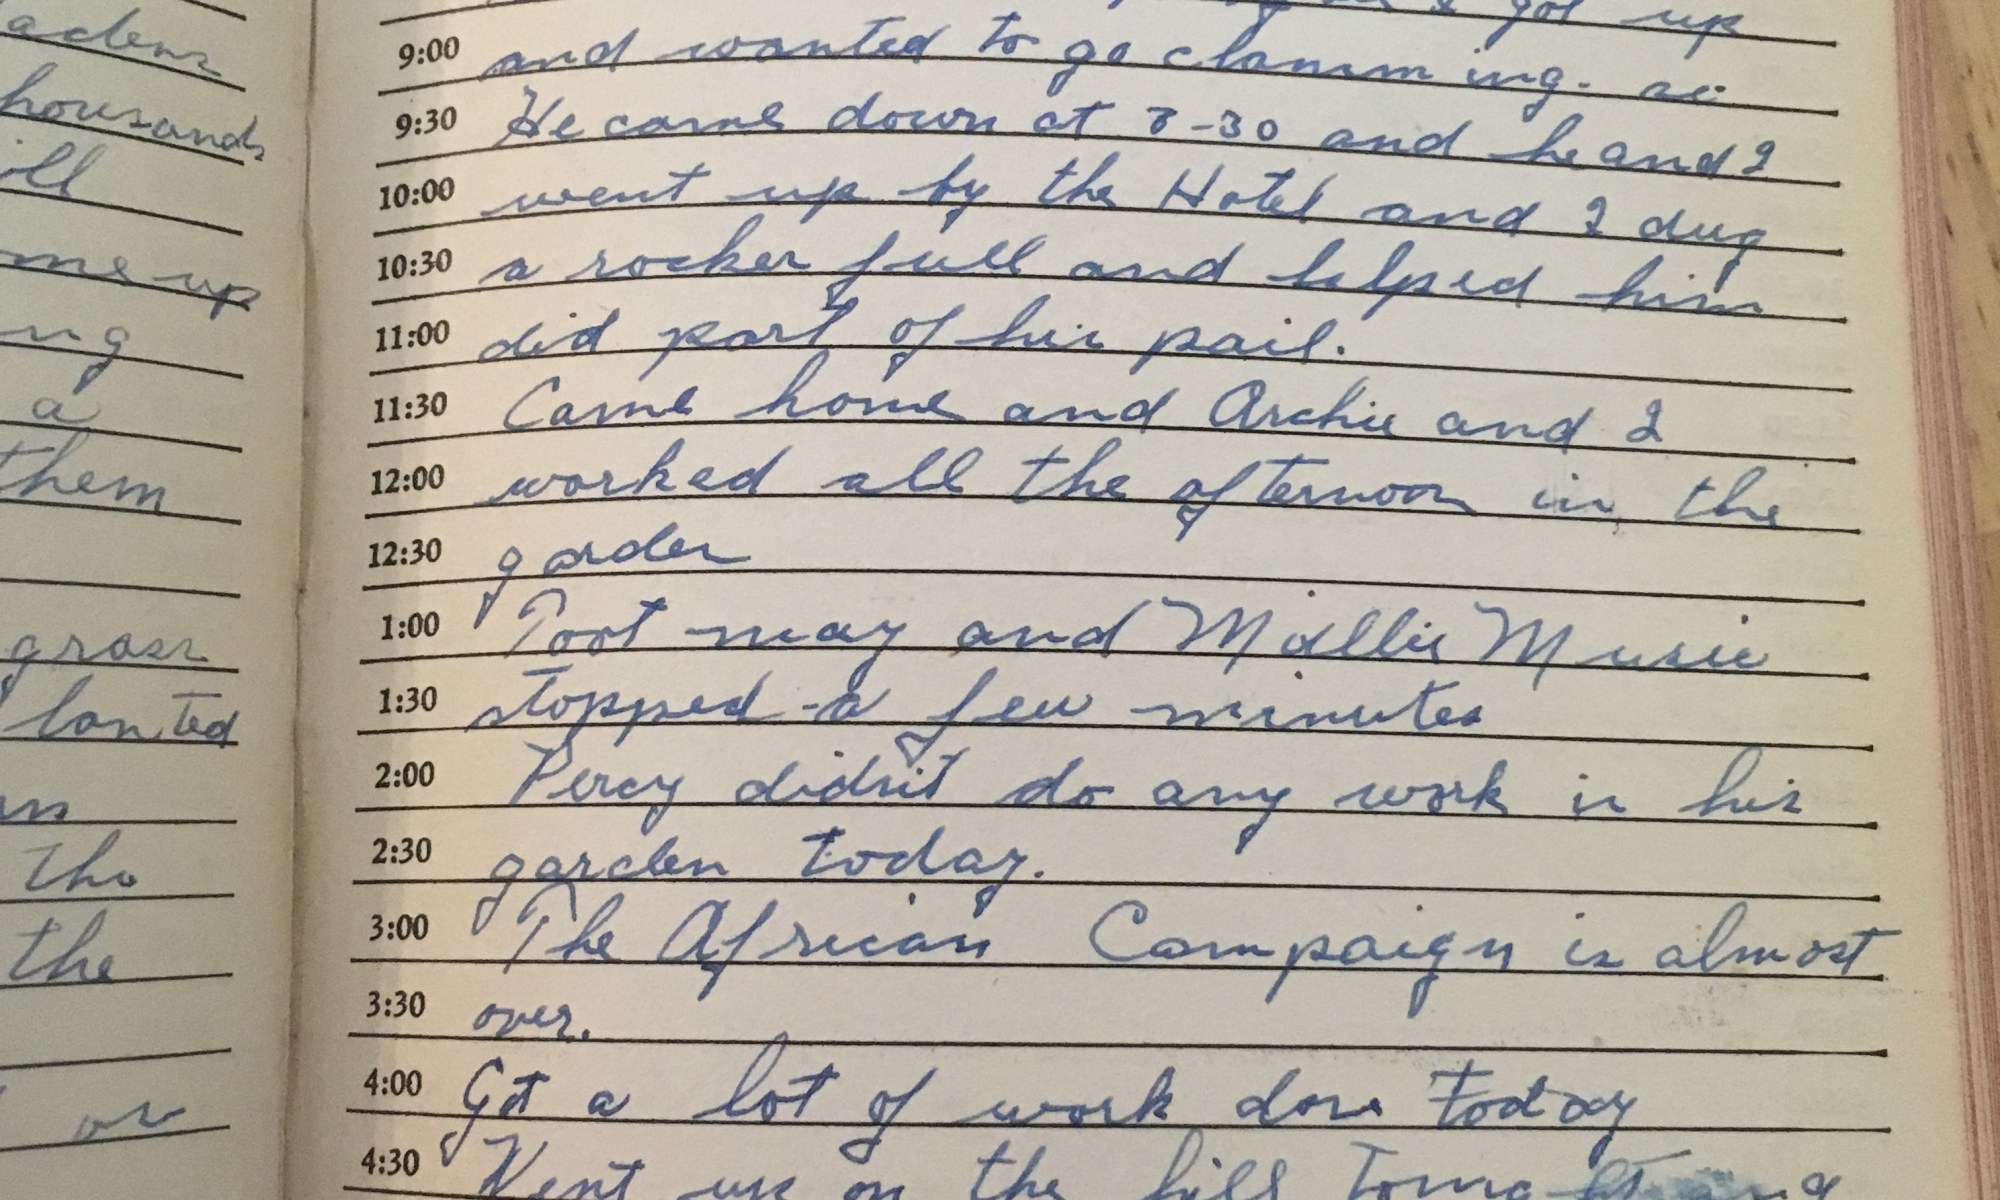 adens
housands
ill
me up
ng
a
them
grass
lanted
the
the
or
got up
9:00 and wanted to go clamming.
9:30 He came down at 8-30 and he and I
10:00 went up by the Hotel and I dug
10:30 a rocker full and helped him
11:00 did part of his pail.
11:30 Came home and Archie and I
12:00 worked all the afternoon in the
12:30 garden
1:00 Toot may and Mollie Music
1:30 stopped a few minutes
2:00 Percy didn't do any work in his
2:30 garden today.
3:00 The African Campaign is almost
3:30 over.
4:00 Got a lot of work done today
4:30 Went up on the hill